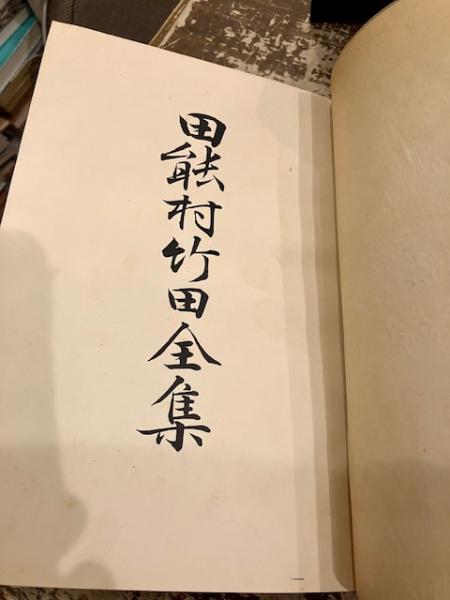 田能村竹田全集